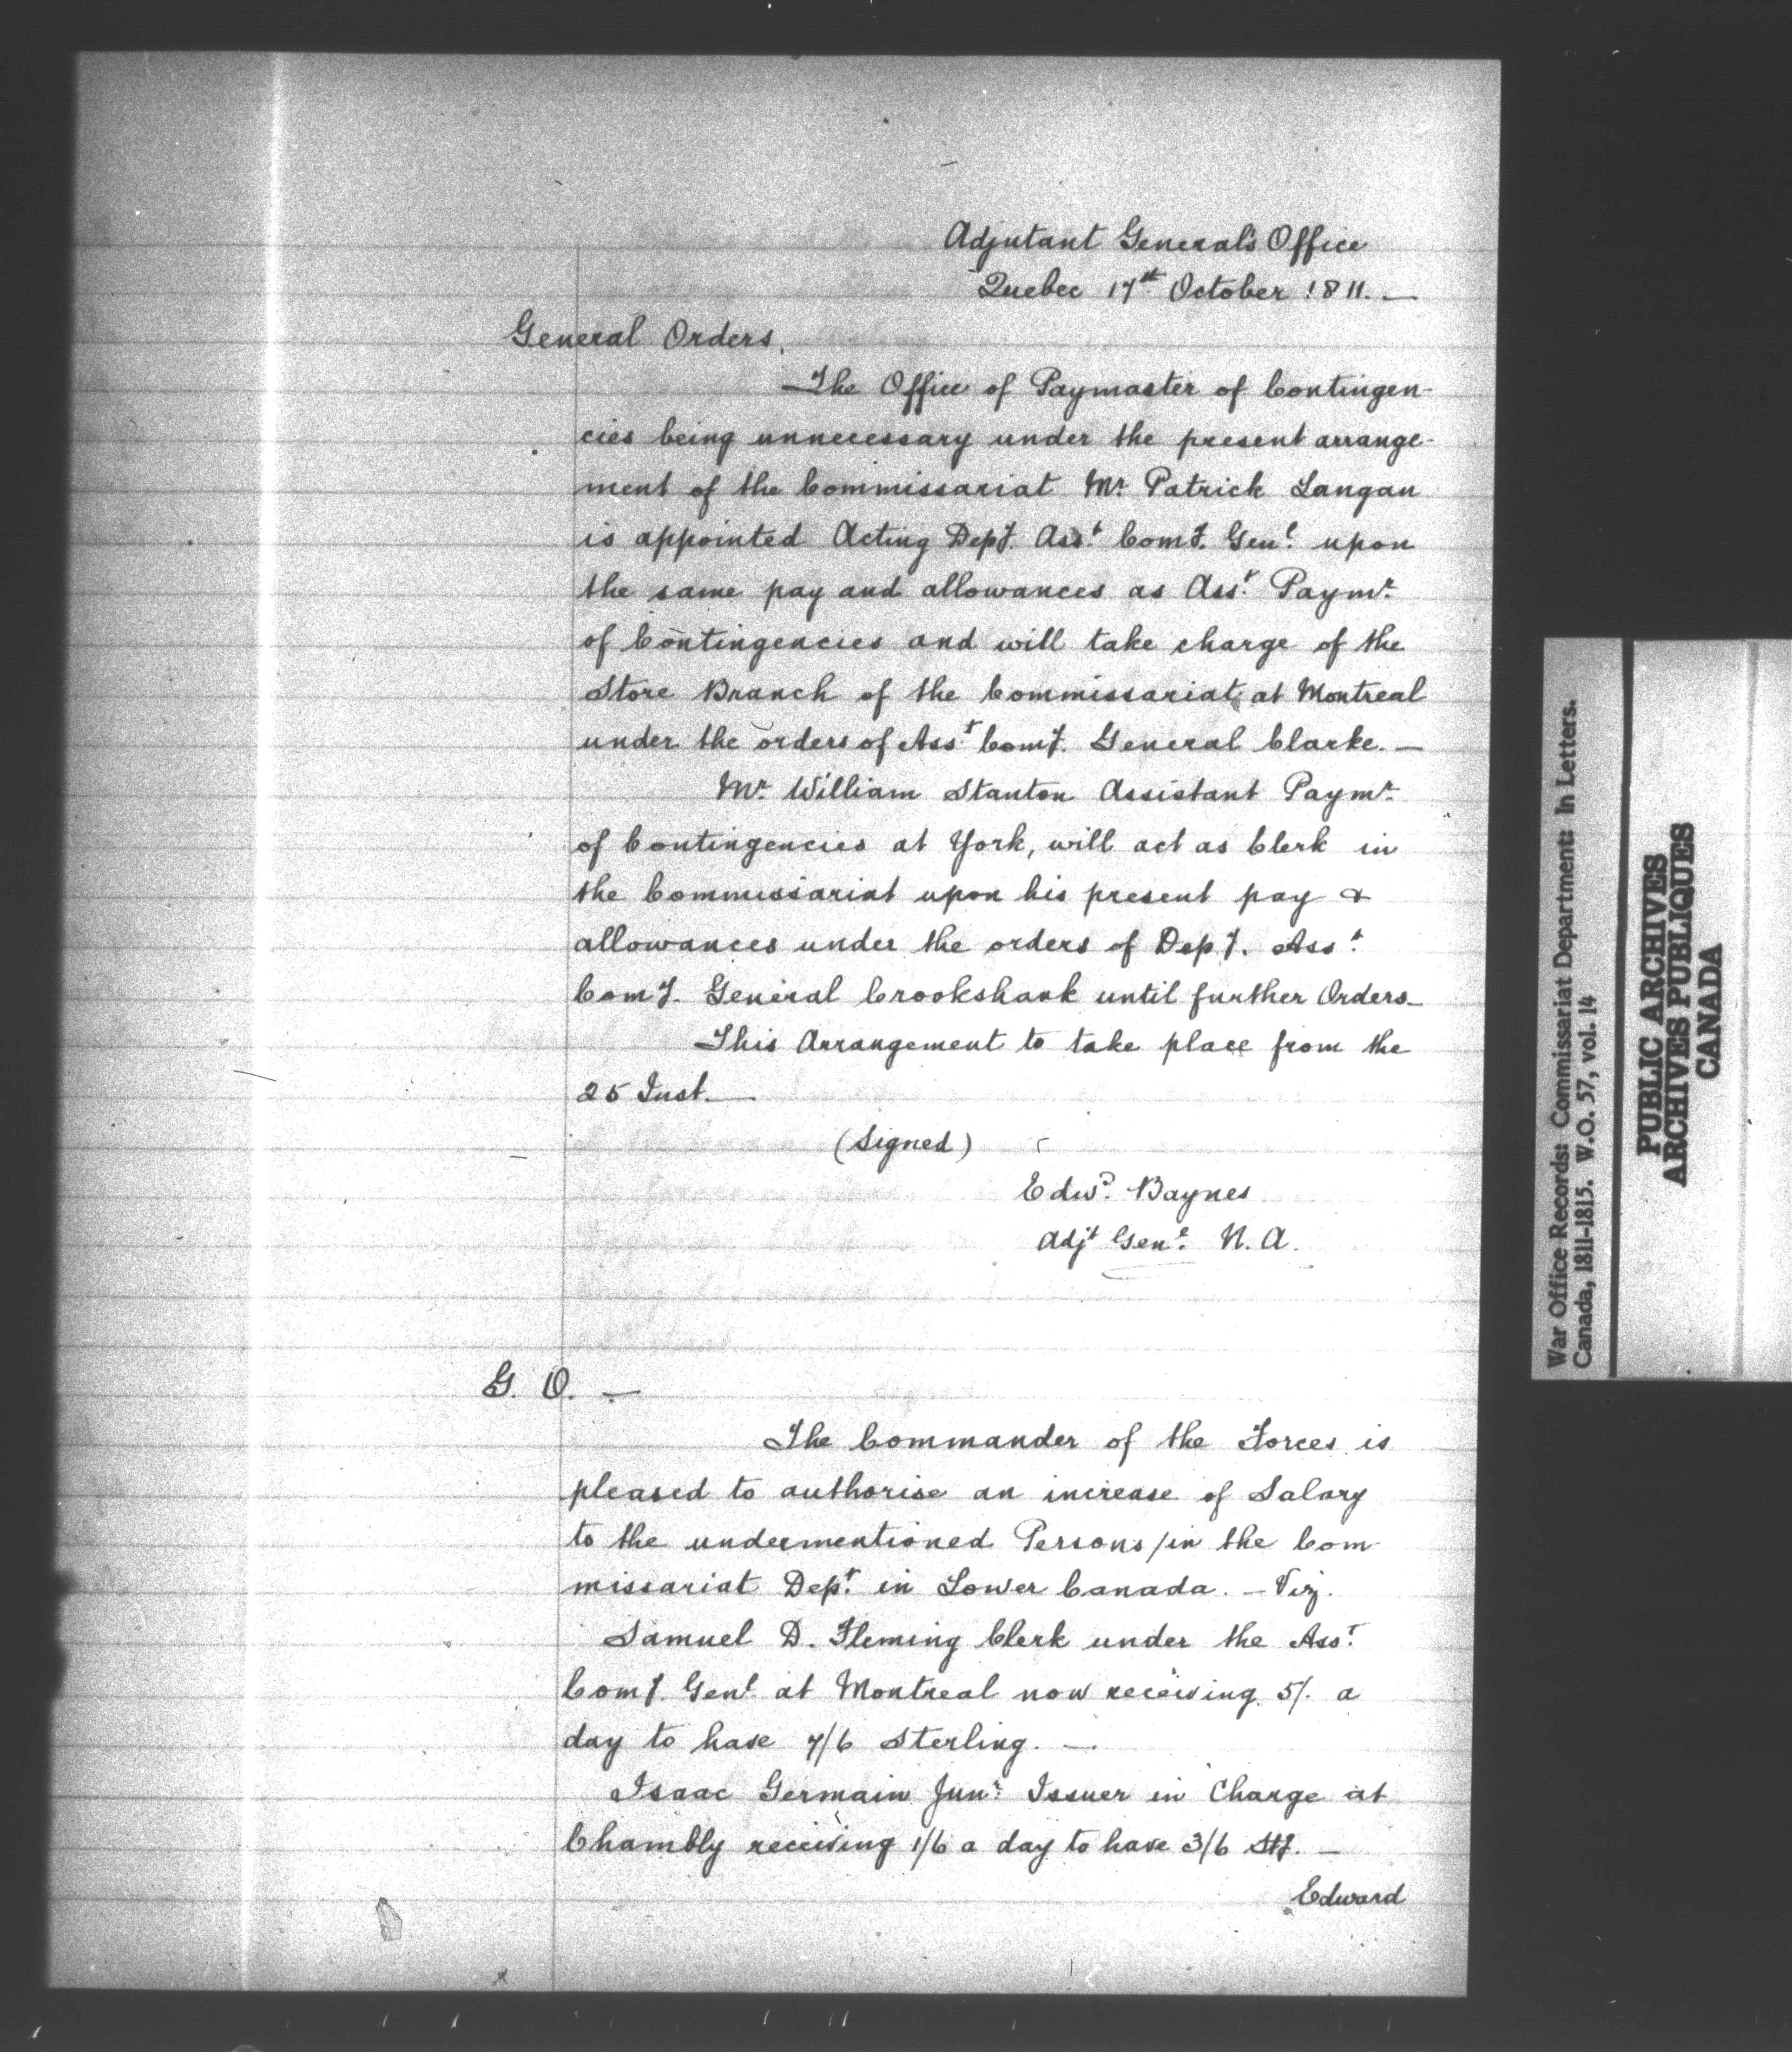 Adjutant General's Office
Quebec 17th October 1811. —
General Orders.
The Office of Paymaster of Contingen-
cies being unnecessary under the present arrange-
ment of the Commissariat Mr. Patrick Langan
is appointed Acting Depy. Asst. Comy. Genl. upon
the same pay and allowances as Asst. Paymr.
of Contingencies and will take charge of the
Store Branch of the Commissariat at Montreal
under the orders of Asst. Comy. General Clarke. —
Mr. William Stanton Assistant Paymr.
of Contingencies at York, will act as Clerk in
the Commissariat upon his present pay &
allowances under the orders of Depy. Asst.
Comy. General Crookshank until further Orders —
This Arrangement to take place from the
25 Inst. —
(Signed)
Edwd. Baynes
Adjt Genl. N. A.
G. O. —
The Commander of the Forces is
pleased to authorise an increase of Salary
to the undermentioned Persons /in the Com-
missariat Dept. in Lower Canada. — Viz.
Samuel D. Fleming Clerk under the Asst.
Comy. Genl. at Montreal now receiving 5/. a
day to have 7/6 Sterling. —
Isaac Germain Junr. Issuer in Charge at
Chambly receiving 1/6 a day to have 3/6 Stg. —
Edward
War Office Records: Commissariat Department: In Letters.
Canada, 1811-1815. W.O. 57, vol. 14
PUBLIC ARCHIVES
ARCHIVES PUBLIQUES
CANADA